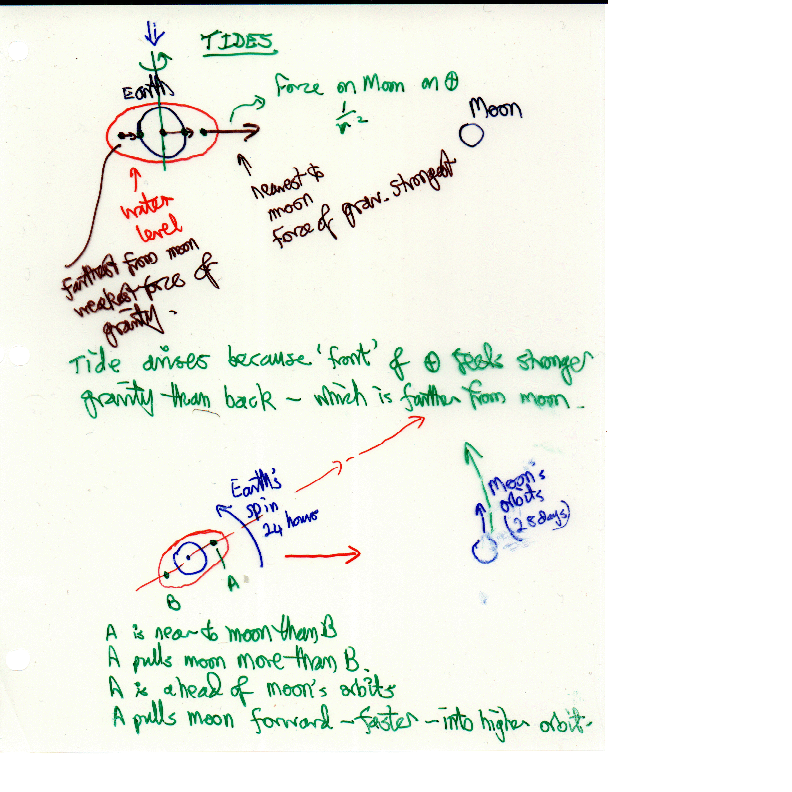 TIDES
Earth
Force on Moon on ⊕
1/r²
Moon
water
level
nearest to
moon
Force of grav. strongest
farthest from moon
weakest force of
gravity.
Tide arises because 'front' of ⊕ feels stronger
gravity than back - which is farther from moon.
Earth's
spin
24 hours
Moon's
orbits
(28 days)
A
B
A is near to moon than B
A pulls moon more than B.
A is ahead of moon's orbits
A pulls moon forward - faster - into higher orbit.